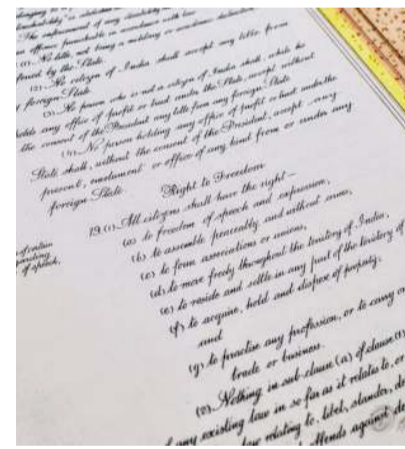 The enforcement of any disability
offence punishable in accordance with law.
(1). No title, not being a military or academic distinction,
ferred by the State.
(2). No citizen of India shall accept any title from
foreign State.
(3). No person who is not a citizen of India shall, while he
holds any office of profit or trust under the State, accept without
the consent of the President any title from any foreign State.
(4). No person holding any office of profit or trust under the
State shall, without the consent of the President, accept any
present, emolument or office of any kind from or under any
foreign State.
Right to Freedom
19. (1). All citizens shall have the right—
(a) to freedom of speech and expression,
(b) to assemble peaceably and without arms,
(c) to form associations or unions,
(d) to move freely throughout the territory of India,
(e) to reside and settle in any part of the territory of
(f) to acquire, hold and dispose of property,
and
(g) to practise any profession, or to carry o
trade or business.
(2). Nothing in sub-clause (a) of clause (1)
any existing law in so far as it relates to, or
relating to, libel, slander, de
offends against de
of certain
garding
of speech,